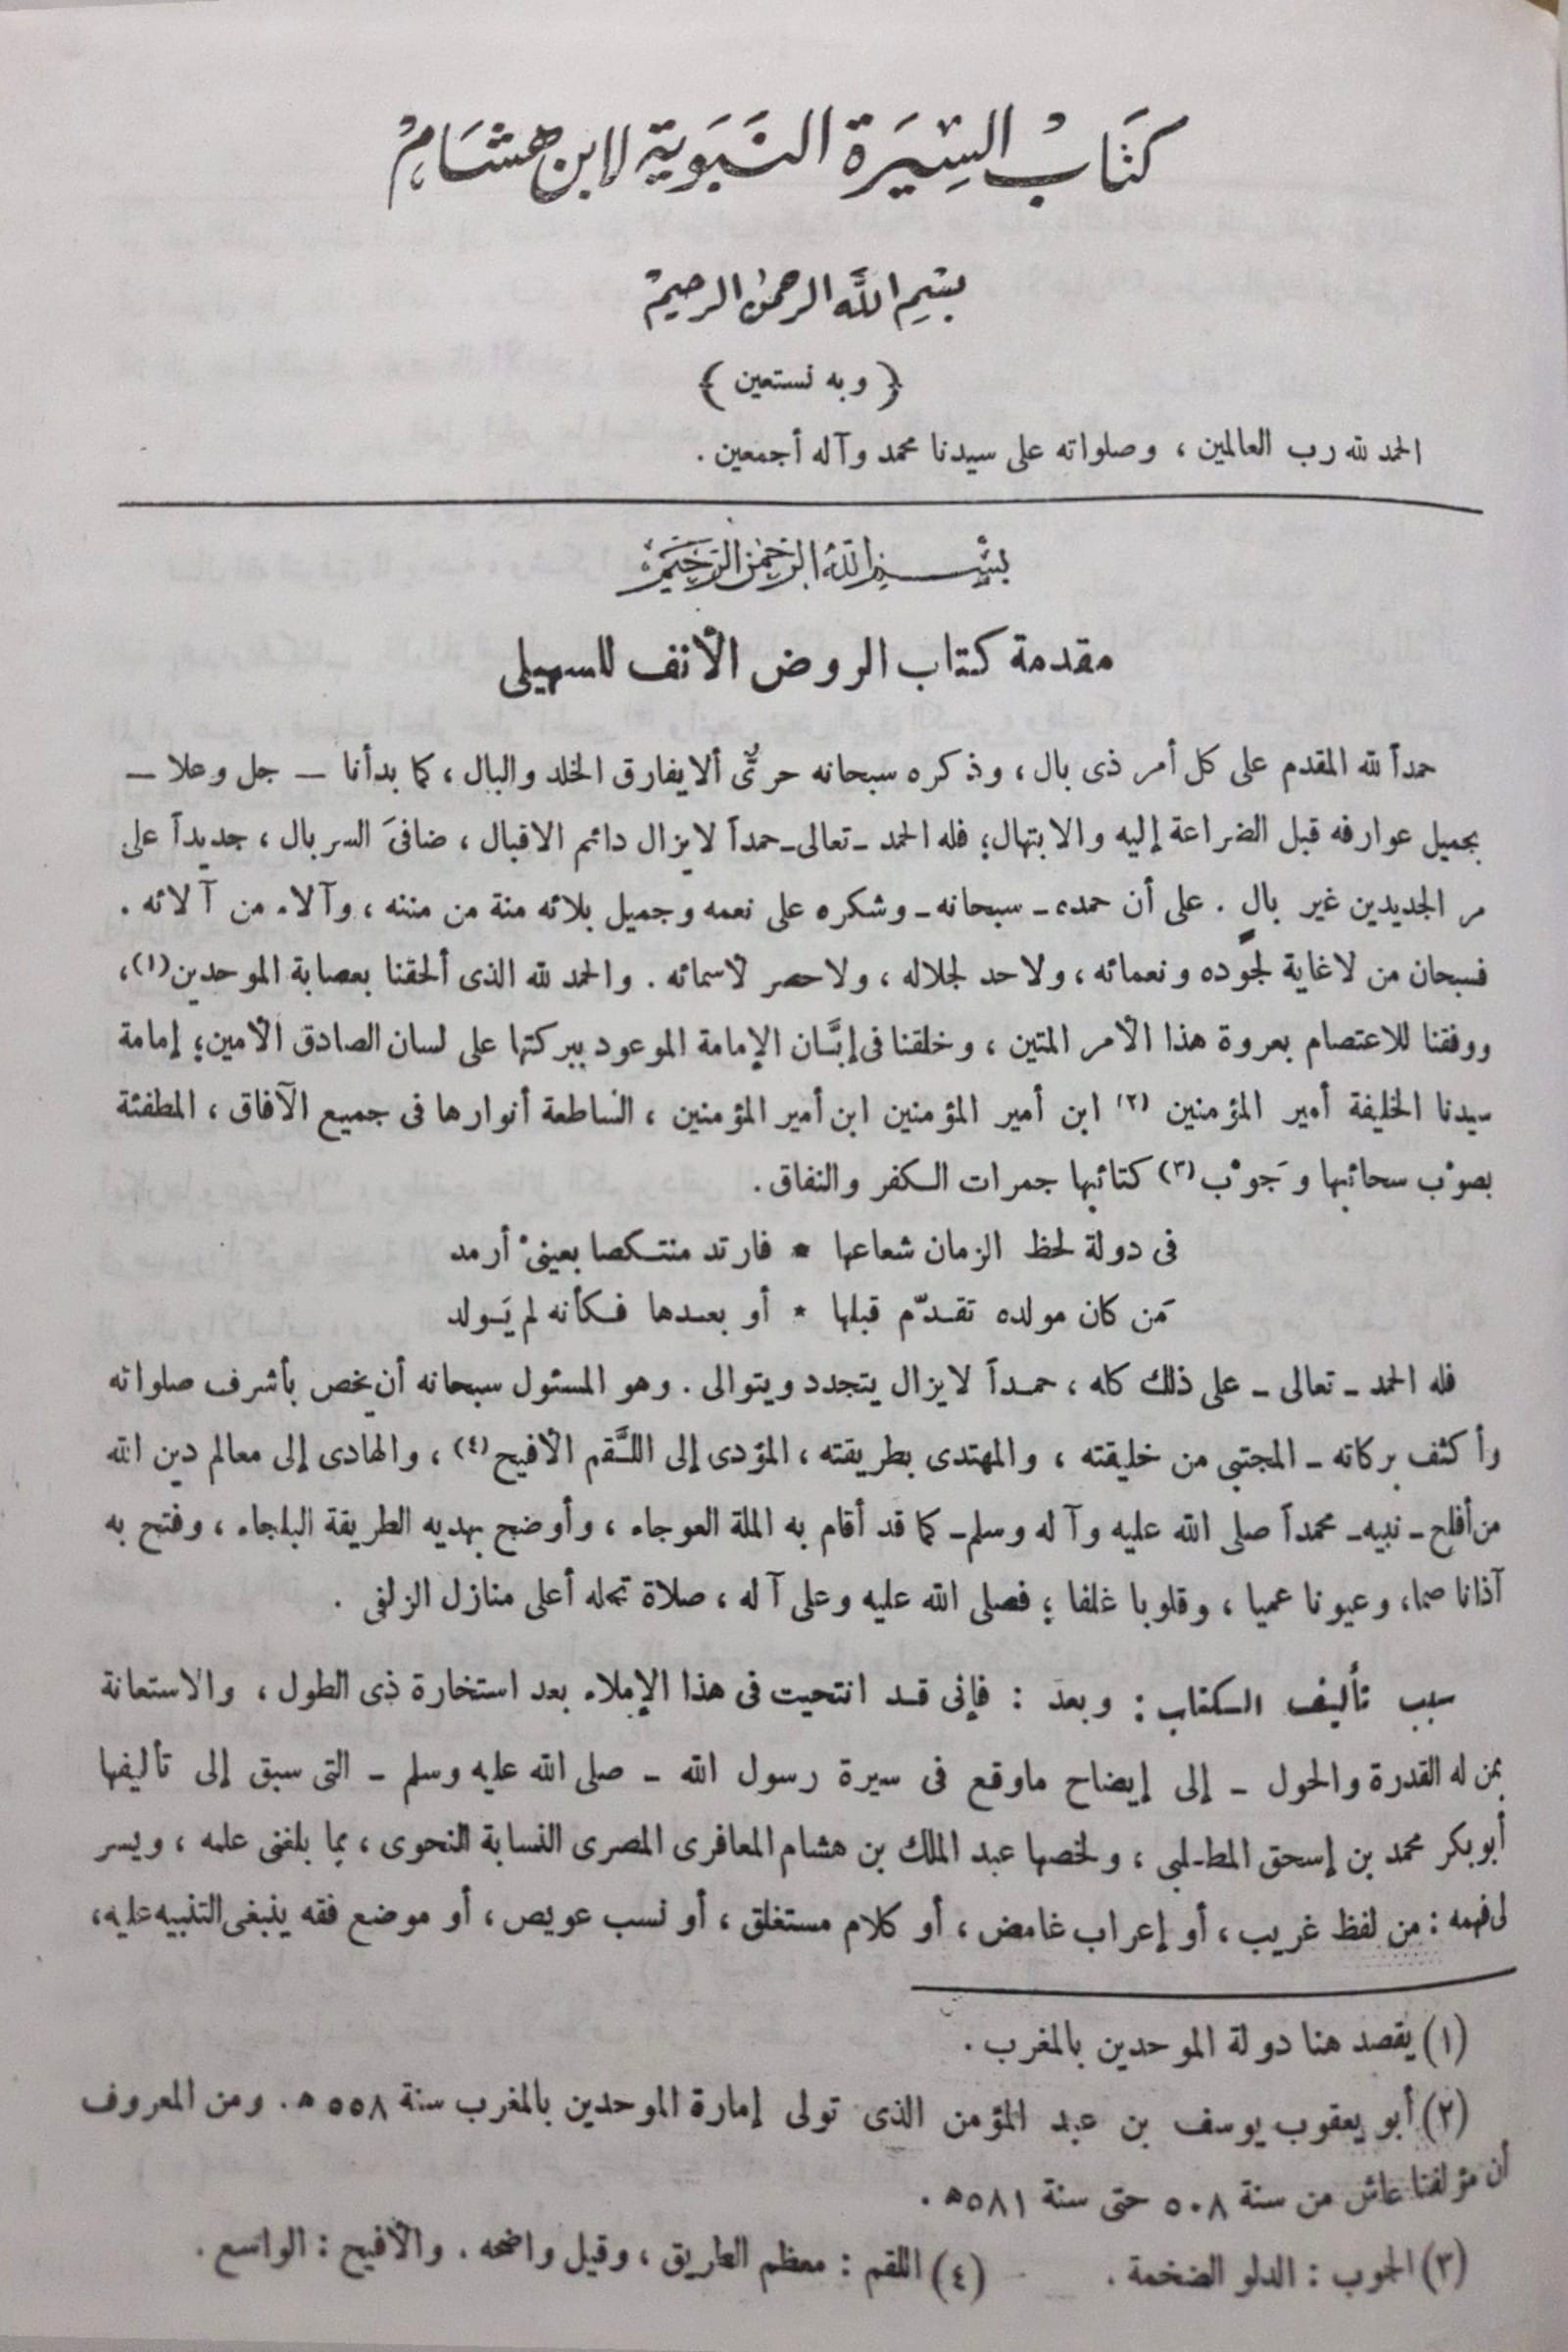 كتاب السيرة النبوية لابن هشام
بسم الله الرحمن الرحيم
﴿ وبه نستعين ﴾
الحمد لله رب العالمين ، وصلواته على سيدنا محمد وآله أجمعين .
بسم الله الرحمن الرحيم
مقدمة كتاب الروض الأنف للسهيلى
حمداً لله المقدم على كل أمر ذى بال ، وذكره سبحانه حرىٌّ ألا يفارق الخلد والبال ، كما بدأنا – جل وعلا –
بجميل عوارفه قبل الضراعة إليه والابتهال؛ فله الحمد -تعالى- حمداً لا يزال دائم الاقبال ، ضافىَ السربال ، جديداً على
مر الجديدين غير بالٍ . على أن حمده - سبحانه - وشكره على نعمه وجميل بلائه منة من مننه ، وآلاء من آلائه .
فسبحان من لاغاية لجوده ونعمائه ، ولاحد لجلاله ، ولاحصر لأسمائه . والحمد لله الذى ألحقنا بعصابة الموحدين (١) ،
ووفقنا للاعتصام بعروة هذا الأمر المتين ، وخلقنا فى إبَّان الإمامة الموعود ببركتها على لسان الصادق الأمين؛ إمامة
سيدنا الخليفة أمير المؤمنين (٢) ابن أمير المؤمنين ابن أمير المؤمنين ، الساطعة أنوارها فى جميع الآفاق ، المطفئة
بصوْب سحائبها وَجوْب (٣) كتائبها جمرات الكفر والنفاق .
فى دولة لحظ الزمان شعاعها * فارتد منتكصا بعينىْ أرمد
مَن كان مولده تقدّم قبلها * أو بعدها فكأنه لم يَولد
فله الحمد - تعالى - على ذلك كله ، حمداً لايزال يتجدد ويتوالى . وهو المسئول سبحانه أن يخص بأشرف صلواته
وأكثف بركاته - المجتبى من خليقته ، والمهتدى بطريقته ، المؤدى إلى اللَّقم الأفيح (٤) ، والهادى إلى معالم دين الله
من أفلح - نبيه - محمداً صلى الله عليه وآله وسلم - كما قد أقام به الملة العوجاء ، وأوضح بهديه الطريقة البلجاء ، وفتح به
آذانا صما، وعيونا عميا ، وقلوبا غلفا ؛ فصلى الله عليه وعلى آله ، صلاة تحله أعلى منازل الزلفى .
سبب تأليف الكتاب : وبعد : فإنى قد انتحيت فى هذا الإملاء بعد استخارة ذى الطول ، والاستعانة
بمن له القدرة والحول - إلى إيضاح ماوقع فى سيرة رسول الله - صلى الله عليه وسلم - التى سبق إلى تأليفها
أبو بكر محمد بن إسحق المطلبى ، ولخصها عبد الملك بن هشام المعافرى المصرى النسابة النحوى ، بما بلغنى علمه ، ويسر
لى فهمه : من لفظ غريب ، أو إعراب غامض ، أو كلام مستغلق ، أو نسب عويص ، أو موضع فقه ينبغى التنبيه عليه،
(١) يقصد هنا دولة الموحدين بالمغرب .
(٢) أبو يعقوب يوسف بن عبد المؤمن الذى تولى إمارة الموحدين بالمغرب سنة ٥٥٨ ه . ومن المعروف
أن مؤلفنا عاش من سنة ٥٠٨ حتى سنة ٥٨١ ه .
(٣) الجوب : الدلو الضخمة . (٤) اللقم : معظم الطريق ، وقيل واضحه . والأفيح : الواسع .